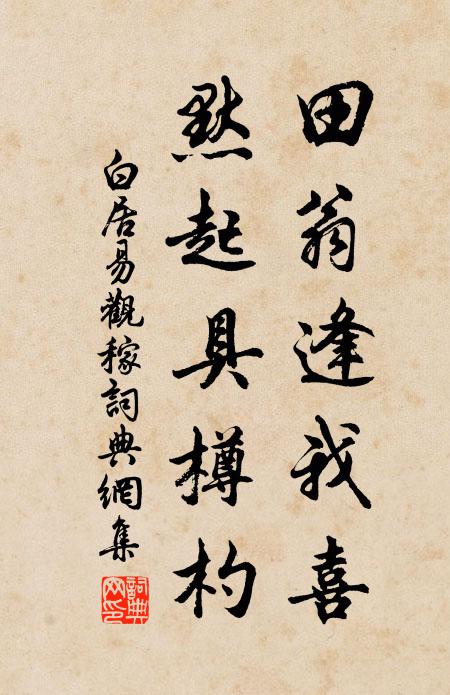 田翁逢我喜
默起具樽杓
白居易觀稼詞典網集
詞典網印